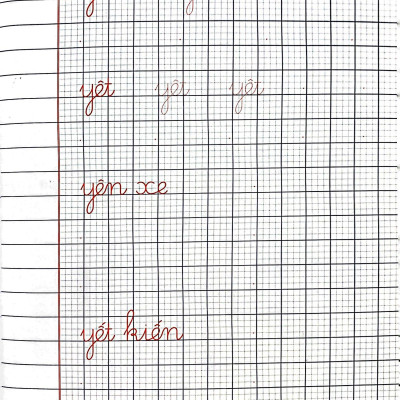 yêt yêt yêt
yên xe
yết kiến